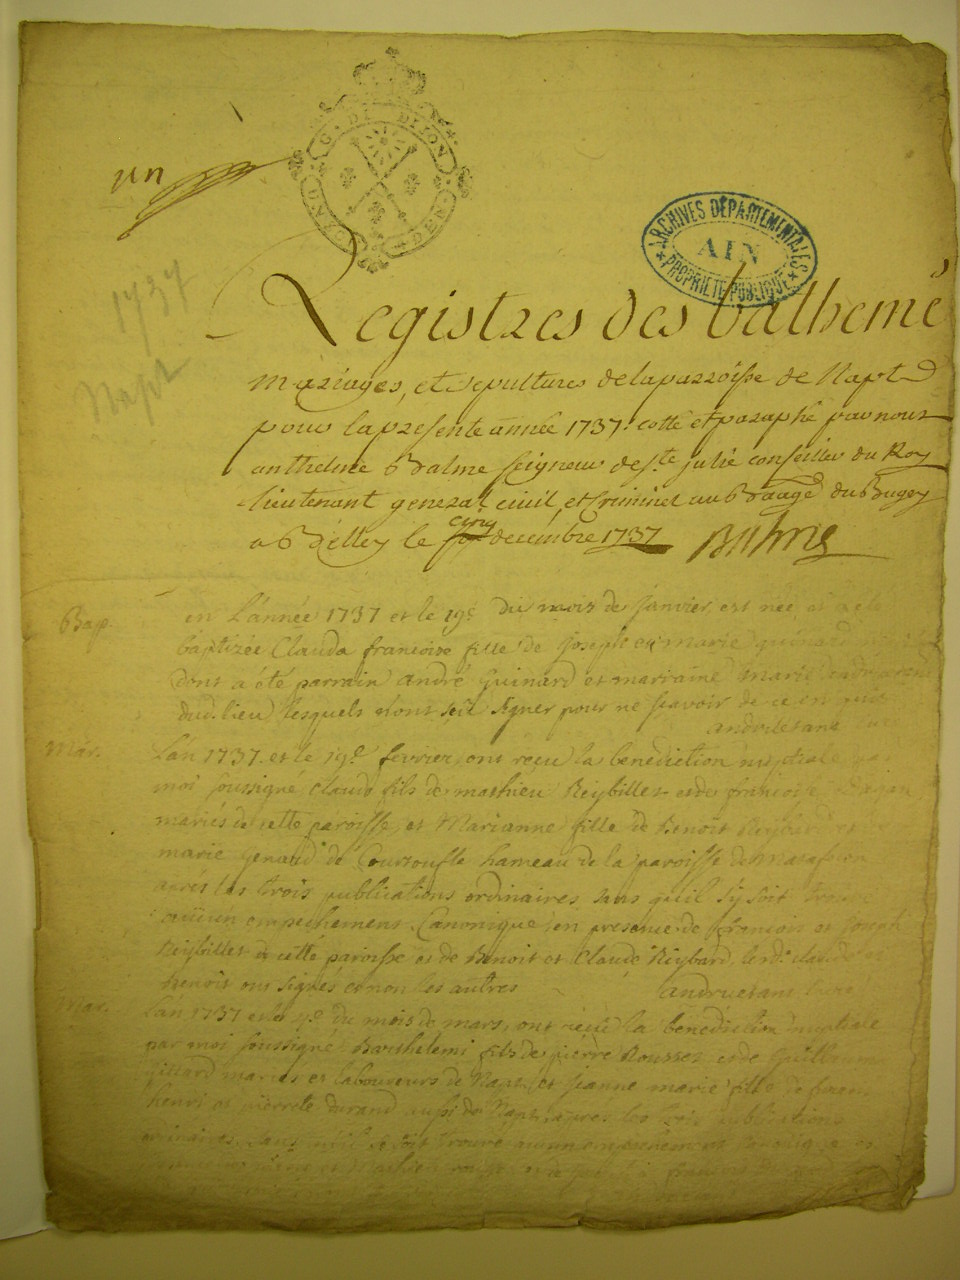 un
G. DE DIJON
DEN.
ARCHIVES DÉPARTEMENTALES
AIN
PROPRIÉTÉ PUBLIQUE
1737
Napt
Registres des bathemê
mariages, et sepultures de la parroisse de Napt
pour la presente année 1737. cotté et paraphé par nous
anthelme Balme seigneur de ste julie conseiller du Roy
lieutenant general civil et criminel au Baage du Bugey
a Belley le cinq decembre 1737 Balme
Bap. en L'année 1737 et le 19e du mois de janvier est née et a eté
baptizée Clauda francoise fille de joseph et marie guinard
dont a été parrain André Guinard et marraine marie
dud. lieu lesquels n'ont sceu signer pour ne scavoir de ce
andruetant
Mar. L'an 1737. et le 19e fevrier, ont reçu la benediction nuptiale par
moi soussigné Claude fils de mathieu Reybillet et de francoise
mariés de cette paroisse, et Marianne fille de Benoit Reybard et
marie Genaud de Coursoufle hameau de la paroisse de matafelon
aprés les trois publications ordinaires sans qu'il s'y soit trouvé
aucun empechement Canonique, en presence de francois et joseph
Reybillet de cette paroisse et de Benoit et Claude Reybard lesd. claude et
benoit ont signés et non les autres andruetant
Mar. L'an 1737 et le 4e du mois de mars, ont reçu la benediction nuptiale
par moi soussigné Barthelemi fils de pierre Rousset et de Guillaum
mariés et laboureurs de Napt, et jeanne marie fille de
henri et pierrete durand aussi de Napt, apres les trois publications
ordinaires, sans qu'il se soit trouvé aucun empechement canonique